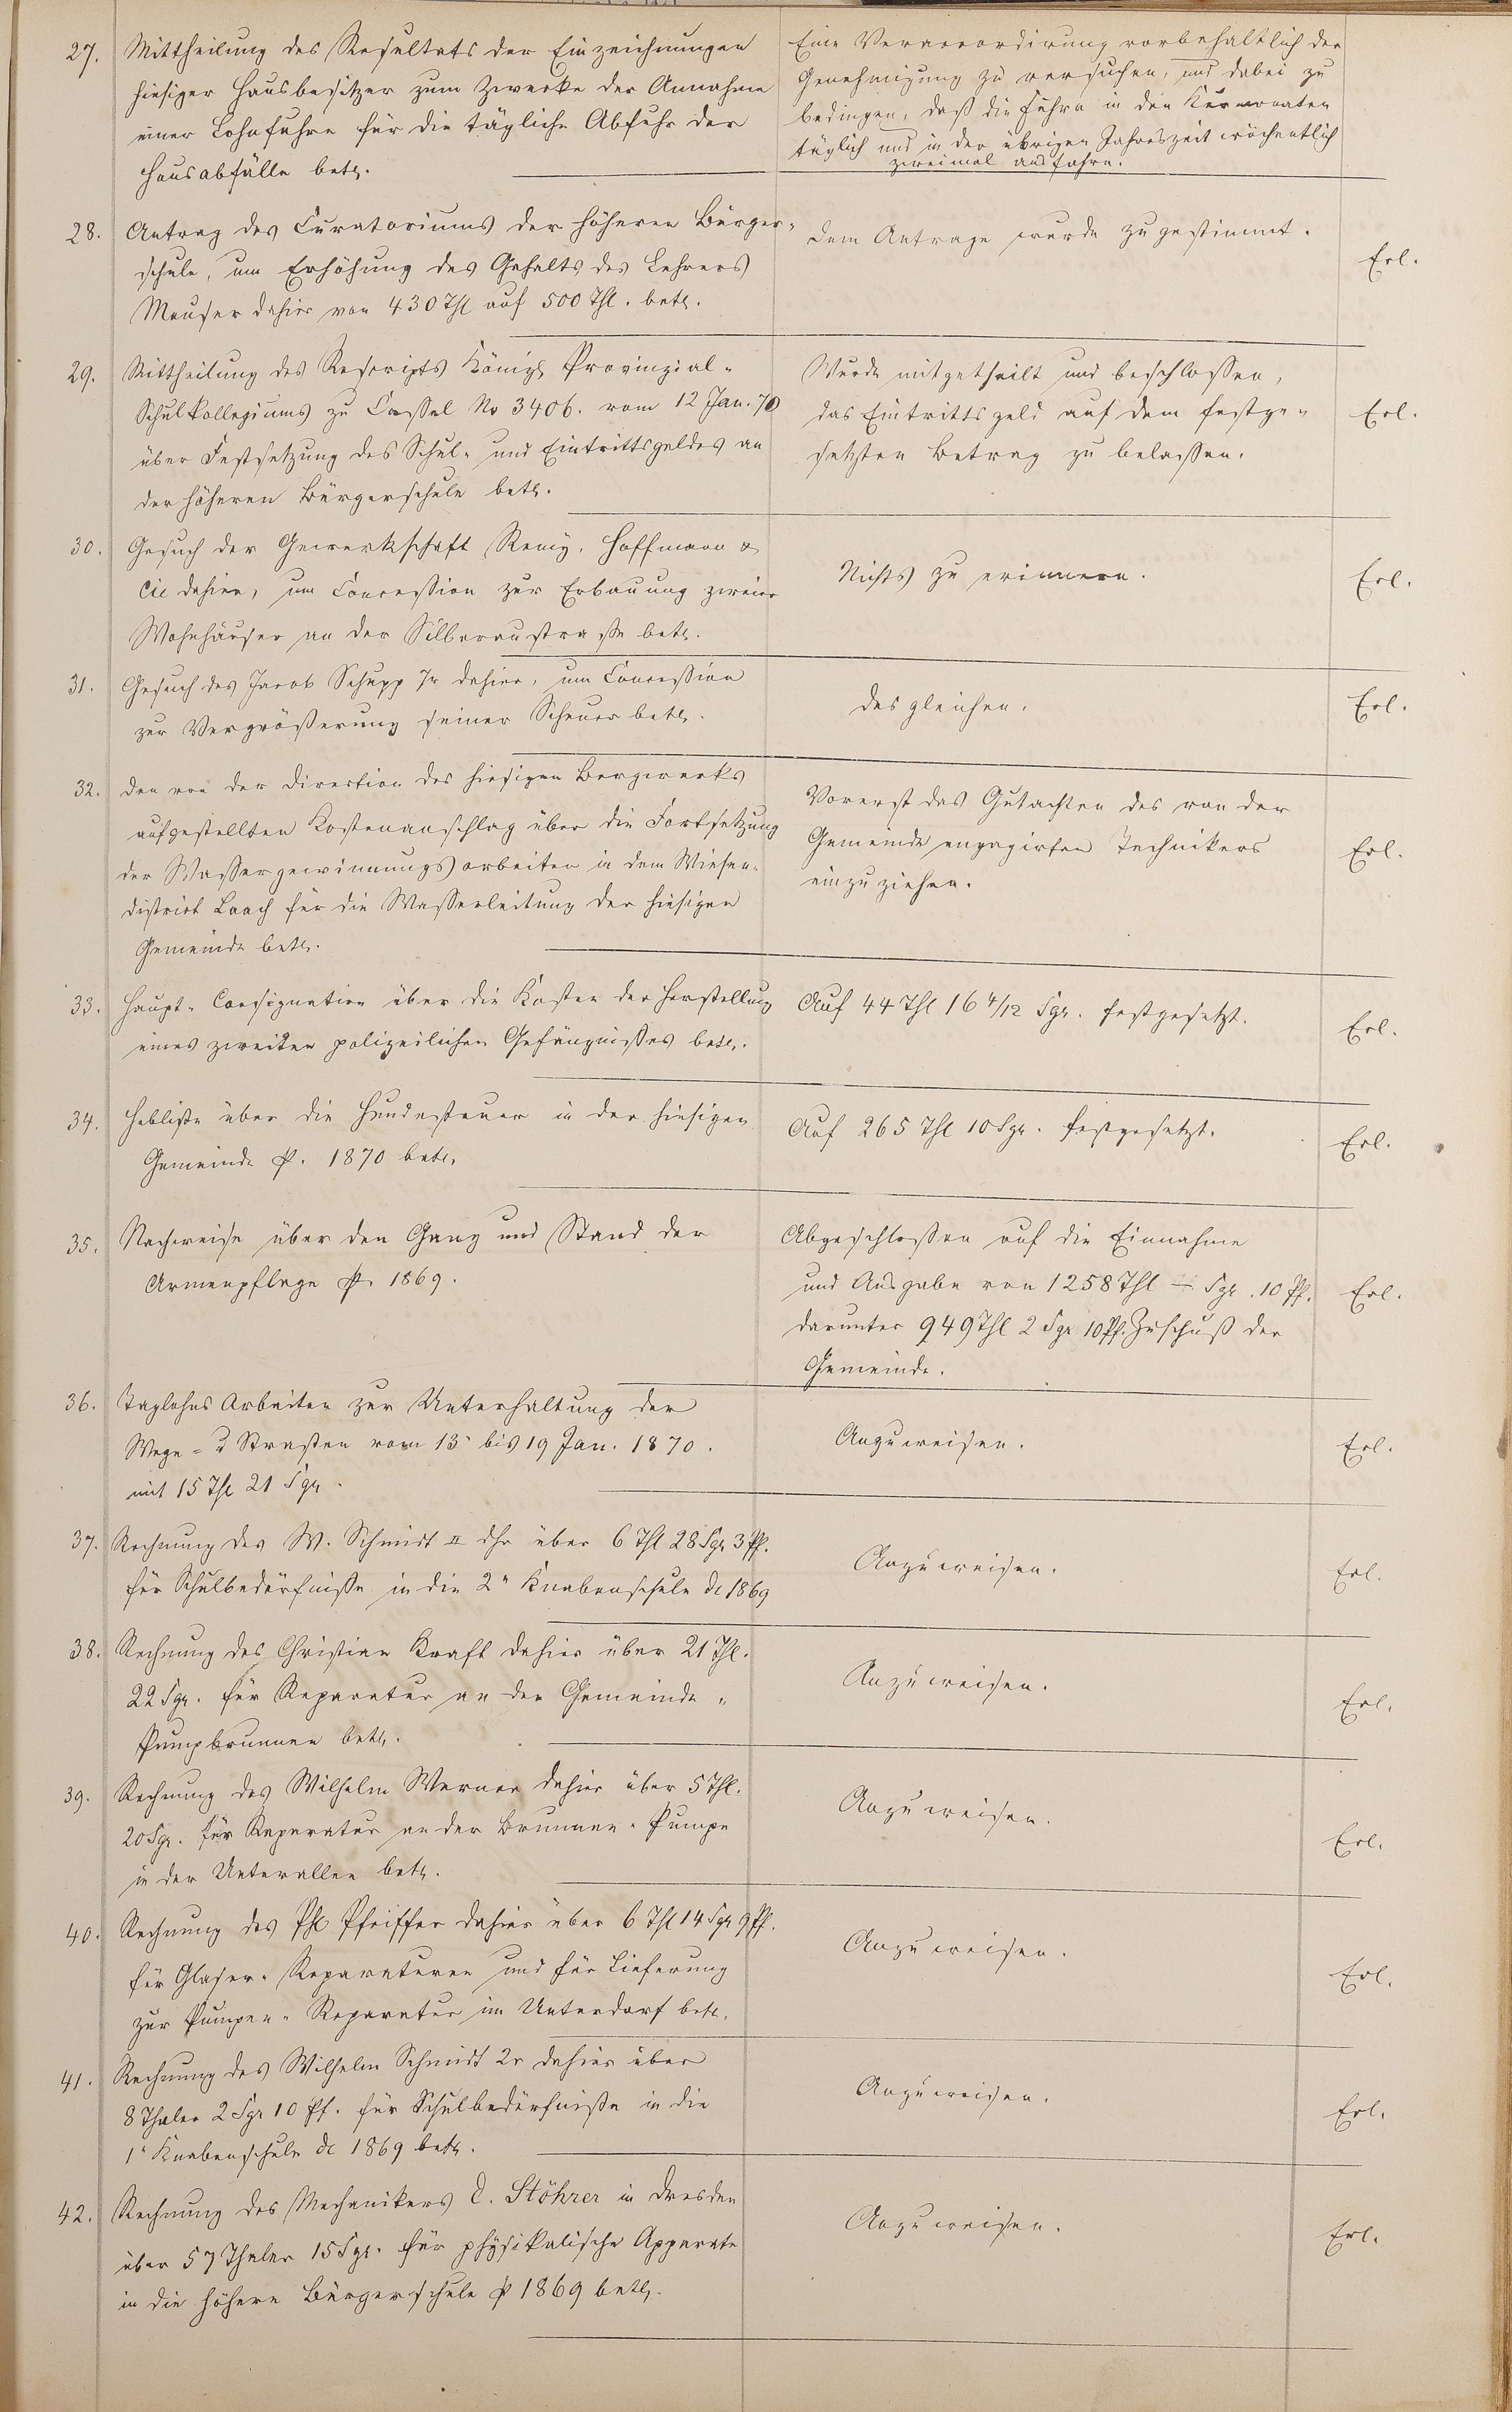 27. Mittheilung des Resultats der Einzeichnungen
hiesiger Hausbesitzer zum Zwecke der Annahme
einer Lohnfuhre für die tägliche Abfuhr der
Hausabfälle betr.
Eine Veraccordirung vorbehaltlich der
Genehmigung zu versuchen, und dabei zu
bedingen, daß die Fuhre in den Kurmonaten
täglich und in der übrigen Jahreszeit wöchentlich
zweimal ausfahre.
28. Antrag des Curatoriums der höheren Bürger-
schule, um Erhöhung des Gehalts des Lehrers
Meuser dahier von 430 Thl auf 500 Thl. betr.
Dem Antrage wurde zugestimmt.
Erl.
29. Mittheilung des Rescripts Königl Provinzial-
Schulkollegiums zu Cassel No 3406. vom 12 Jan. 70
über Festsetzung des Schul- und Eintrittsgeldes an
der höheren Bürgerschule betr.
Wurde mitgetheilt und beschlossen,
das Eintrittsgeld auf dem festge-
setzten Betrag zu belassen.
Erl.
30. Gesuch der Gewerkschaft Remy, Hoffmann &
Cie dahier, um Concession zur Erbauung zweier
Wohnhäuser an der Silberaustraße betr.
Nichts zu erinnern.
Erl.
31. Gesuch des Jacob Schupp 7r dahier, um Concession
zur Vergrößerung seiner Scheuer betr.
desgleichen.
Erl.
32. Den von der Direction des hiesigen Bergwerks
aufgestellten Kostenanschlag über die Fortsetzung
der Wassergewinnungsarbeiten in dem Wiesen-
district Laach für die Wasserleitung der hiesigen
Gemeinde betr.
Vorerst das Gutachten des von der
Gemeinde engagirten Technikers
einzuziehen.
Erl.
33. Haupt-Consignation über die Kosten der Herstellung
eines zweiten polizeilichen Gefängnisses betr.
Auf 44 Thl 16 4/12 Sgr. festgesetzt.
Erl.
34. Hebliste über die Hundesteuer in der hiesigen
Gemeinde p. 1870 betr.
Auf 265 Thl 10 Sgr. festgesetzt.
Erl.
35. Nachweise über den Gang und Stand der
Armenpflege p. 1869.
Abgeschlossen auf die Einnahme
und Ausgabe von 1258 Thl — Sgr. 10 Pf.
darunter 949 Thl 2 Sgr 10 Pf. Zuschuß der
Gemeinde.
Erl.
36. Taglohns Arbeiten zur Unterhaltung der
Wege- u Straßen vom 13 bis 19 Jan. 1870.
mit 15 Thl 21 Sgr.
Anzuweisen.
Erl.
37. Rechnung des W. Schmidt II dhr über 6 Thl 28 Sgr 3 Pf.
für Schulbedürfnisse in die 2r Knabenschule de 1869
Anzuweisen.
Erl.
38. Rechnung des Christian Kraft dahier über 21 Thl.
22 Sgr. für Reparatur an den Gemeinde-
Pumpbrunnen betr.
Anzuweisen.
Erl.
39. Rechnung des Wilhelm Werner dahier über 5 Thl.
20 Sgr. für Reparatur an der Brunnen-Pumpe
in der Unterallee betr.
Anzuweisen.
Erl.
40. Rechnung des Phl Pfeiffer dahier über 6 Thl 14 Sgr 9 Pf.
für Glaser-Reparaturen und für Lieferung
zur Pumpen-Reparatur im Unterdorf betr.
Anzuweisen.
Erl.
41. Rechnung des Wilhelm Schmidt 2r dahier über
8 Thaler 2 Sgr 10 Pf. für Schulbedürfnisse in die
1r Knabenschule de 1869 betr.
Anzuweisen.
Erl.
42. Rechnung des Mechanikers E. Stöhrer in Dresden
über 57 Thaler 15 Sgr. für physikalische Apparate
in die höhere Bürgerschule p 1869 betr.
Anzuweisen.
Erl.